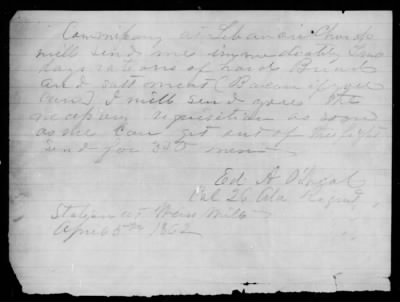 Commissary at Lebanon Church
will send me immediately Two
days rations of hard Bread
and salt meat (Bacon if you
have) I will send you the
necessary requisition as soon
as we can get out of the
send for 230 men
Ed A O'Neal
Col 26 Ala Regmt
Station at Mill
April 5th 1862